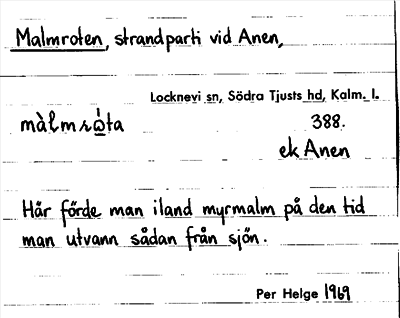 Malmroten, strandparti vid Anen,
Locknevi sn, Södra Tjusts hd, Kalm. l.
màlmrὼta 388.
ek Anen
Här förde man iland myrmalm på den tid
man utvann sådan från sjön.
Per Helge 1969